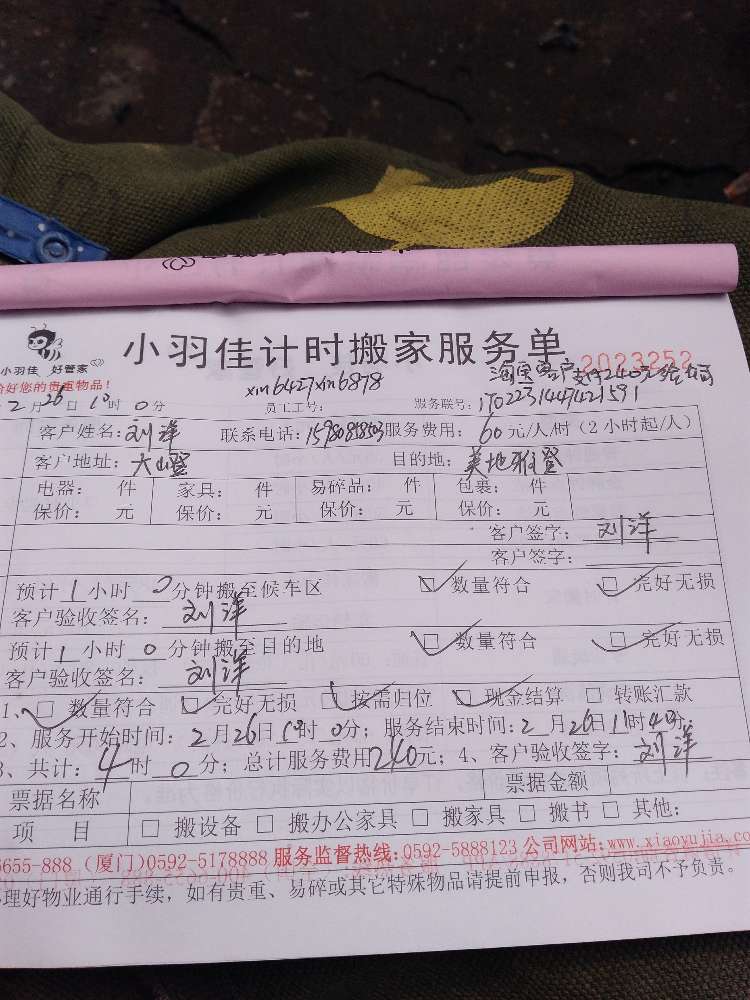 小羽佳 好管家
小羽佳计时搬家服务单
2023252
好您的贵重物品!
淘宝客户支付240元给公司
xin6427xin6878
2月26日10时0分
员工工号:
服务联号: 1702231447421591
客户姓名: 刘洋 联系电话: 服务费用: 60元/人/时(2小时起/人)
客户地址: 大山登 目的地: 美地雅登
电器: 件 家具: 件 易碎品: 件 包裹: 件
保价: 元 保价: 元 保价: 元 保价: 元
客户签字: 刘洋
客户签字:
预计1小时0分钟搬至候车区 ☑数量符合 ☑完好无损
客户验收签名: 刘洋
预计1小时0分钟搬至目的地 ☑数量符合 ☑完好无损
客户验收签名: 刘洋
1、☑数量符合 ☑完好无损 ☑按需归位 ☑现金结算 □转账汇款
2、服务开始时间: 2月26日10时0分; 服务结束时间: 2月26日11时40分
3、共计: 4时0分; 总计服务费用240元; 4、客户验收签字: 刘洋
票据名称 票据金额
项 目 □搬设备 □搬办公家具 □搬家具 □搬书 □其他:
6655-888 (厦门)0592-5178888 服务监督热线:0592-5888123 公司网站:www.xiaoyujia.com
理好物业通行手续，如有贵重、易碎或其它特殊物品请提前申报，否则我司不予负责。